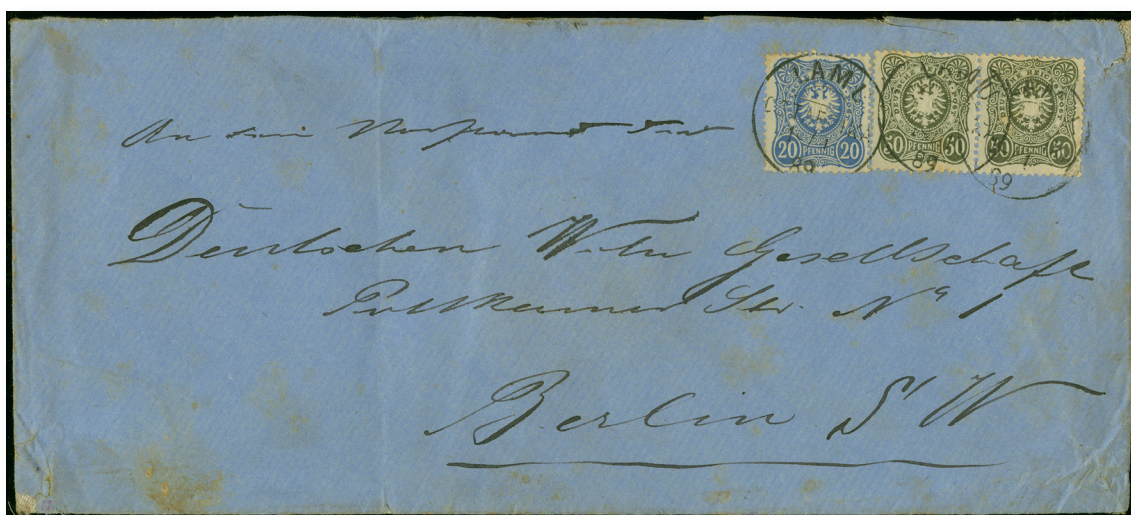 An den Vorstand der
Deutschen Witu Gesellschaft
Puttkamer Str. No 1
Berlin S W
LAMU
1
89
20 PFENNIG 20
50 PFENNIG 50
89
50 PFENNIG 50
1
89